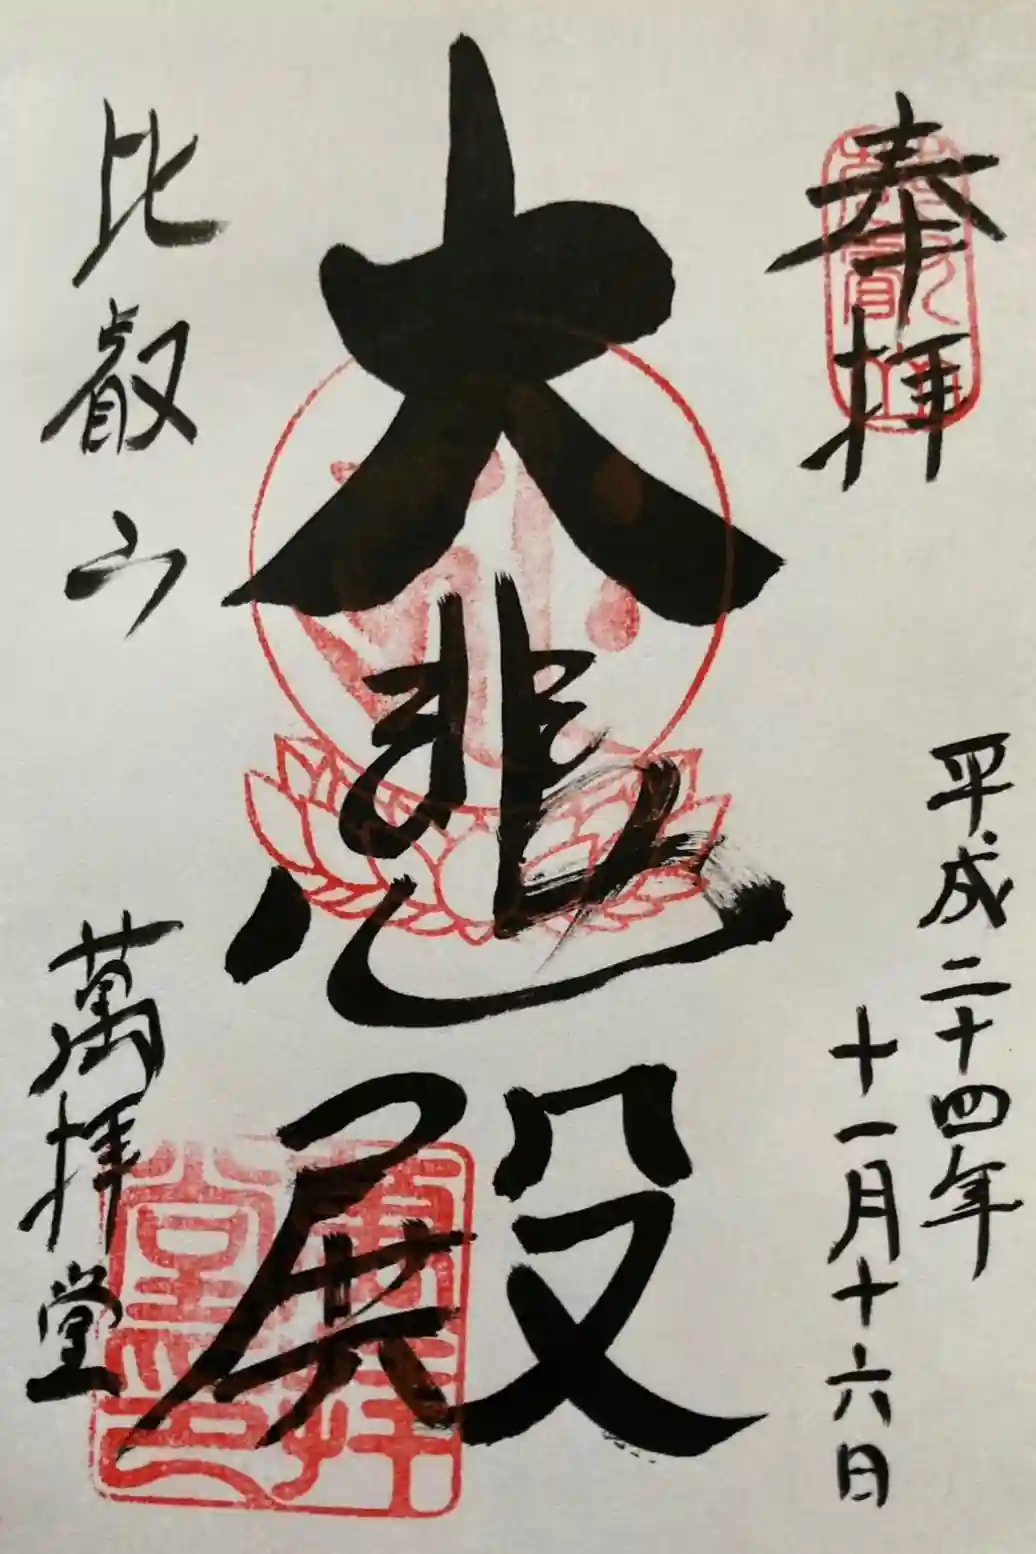 奉拝
平成二十四年
十一月十六日
大悲殿
比叡山
萬拝堂
萬拝堂印